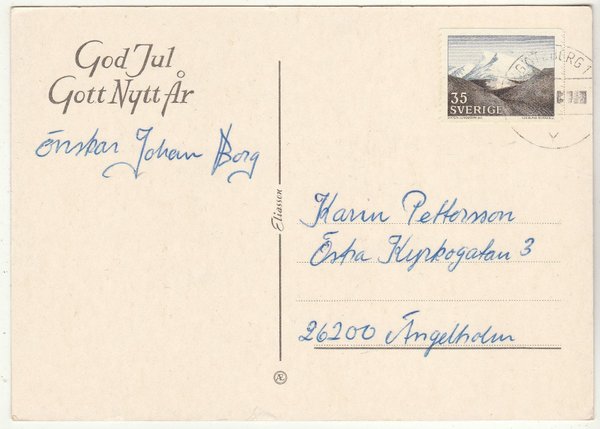 God Jul
Gott Nytt År
Önskar Johan Borg
35
SVERIGE
GÖTEBORG 1
Eliasson
Karin Pettersson
Östra Kyrkogatan 3
26200 Ängelholm
Æ